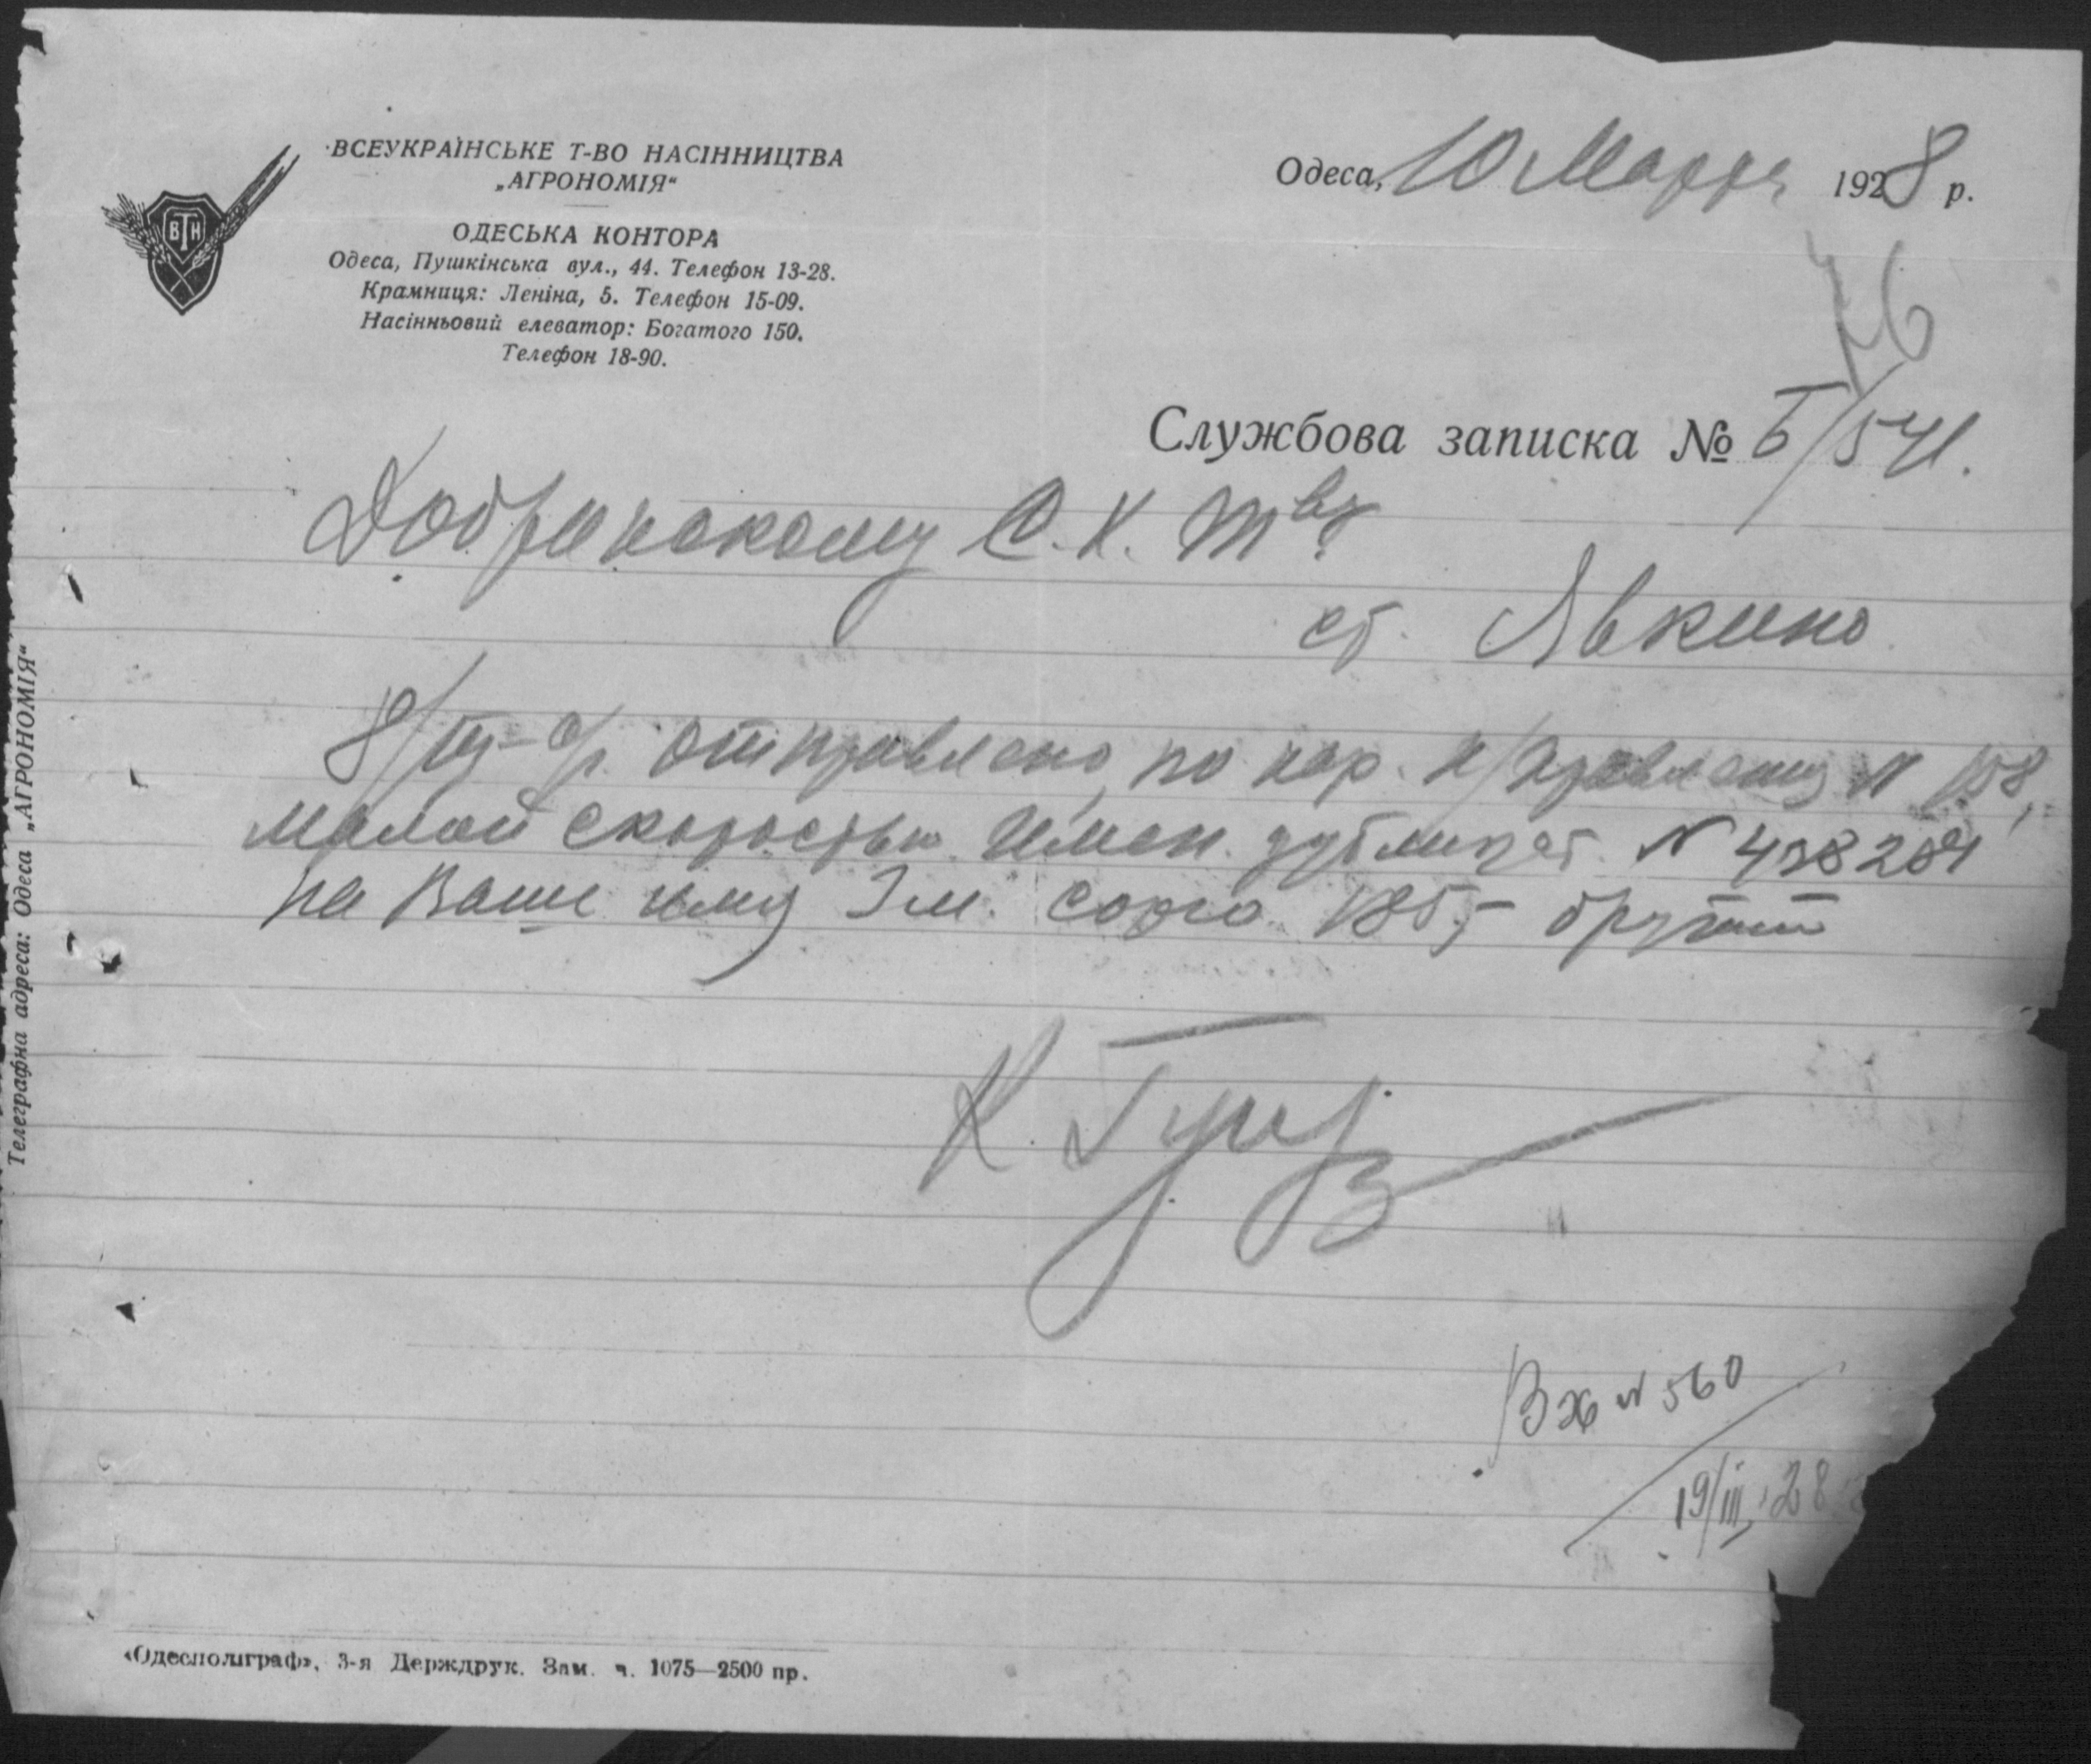 ВСЕУКРАЇНСЬКЕ Т-ВО НАСІННИЦТВА
„АГРОНОМІЯ“
ОДЕСЬКА КОНТОРА
Одеса, Пушкінська вул., 44. Телефон 13-28.
Крамниця: Леніна, 5. Телефон 15-09.
Насінньовий елеватор: Богатого 150.
Телефон 18-90.
ВТН
Одеса, 10 Марта 1928 р.
76
Службова записка № Б/541.
Добринскому С.К. Тву
ст. Явкино
8/III-с/г. отправлено, по нар. н/правления № 108,
малой скоростью. Имен. дубликат № 438204
на Ваше имя 3 м. сорго 185,- брутто
К.
Вх № 560
19/III, 28
Телеграфна адреса: Одеса „АГРОНОМІЯ“
«Одесполіграф», 3-я Держдрук. Зам. ч. 1075—2500 пр.